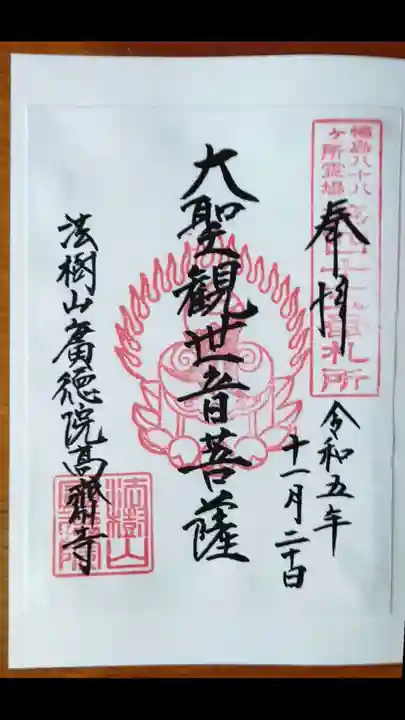 福島八十八
ヶ所霊場
札所
奉拝
令和五年
十一月二十日
大聖観世音菩薩
法樹山廣徳院高齋寺
法樹山